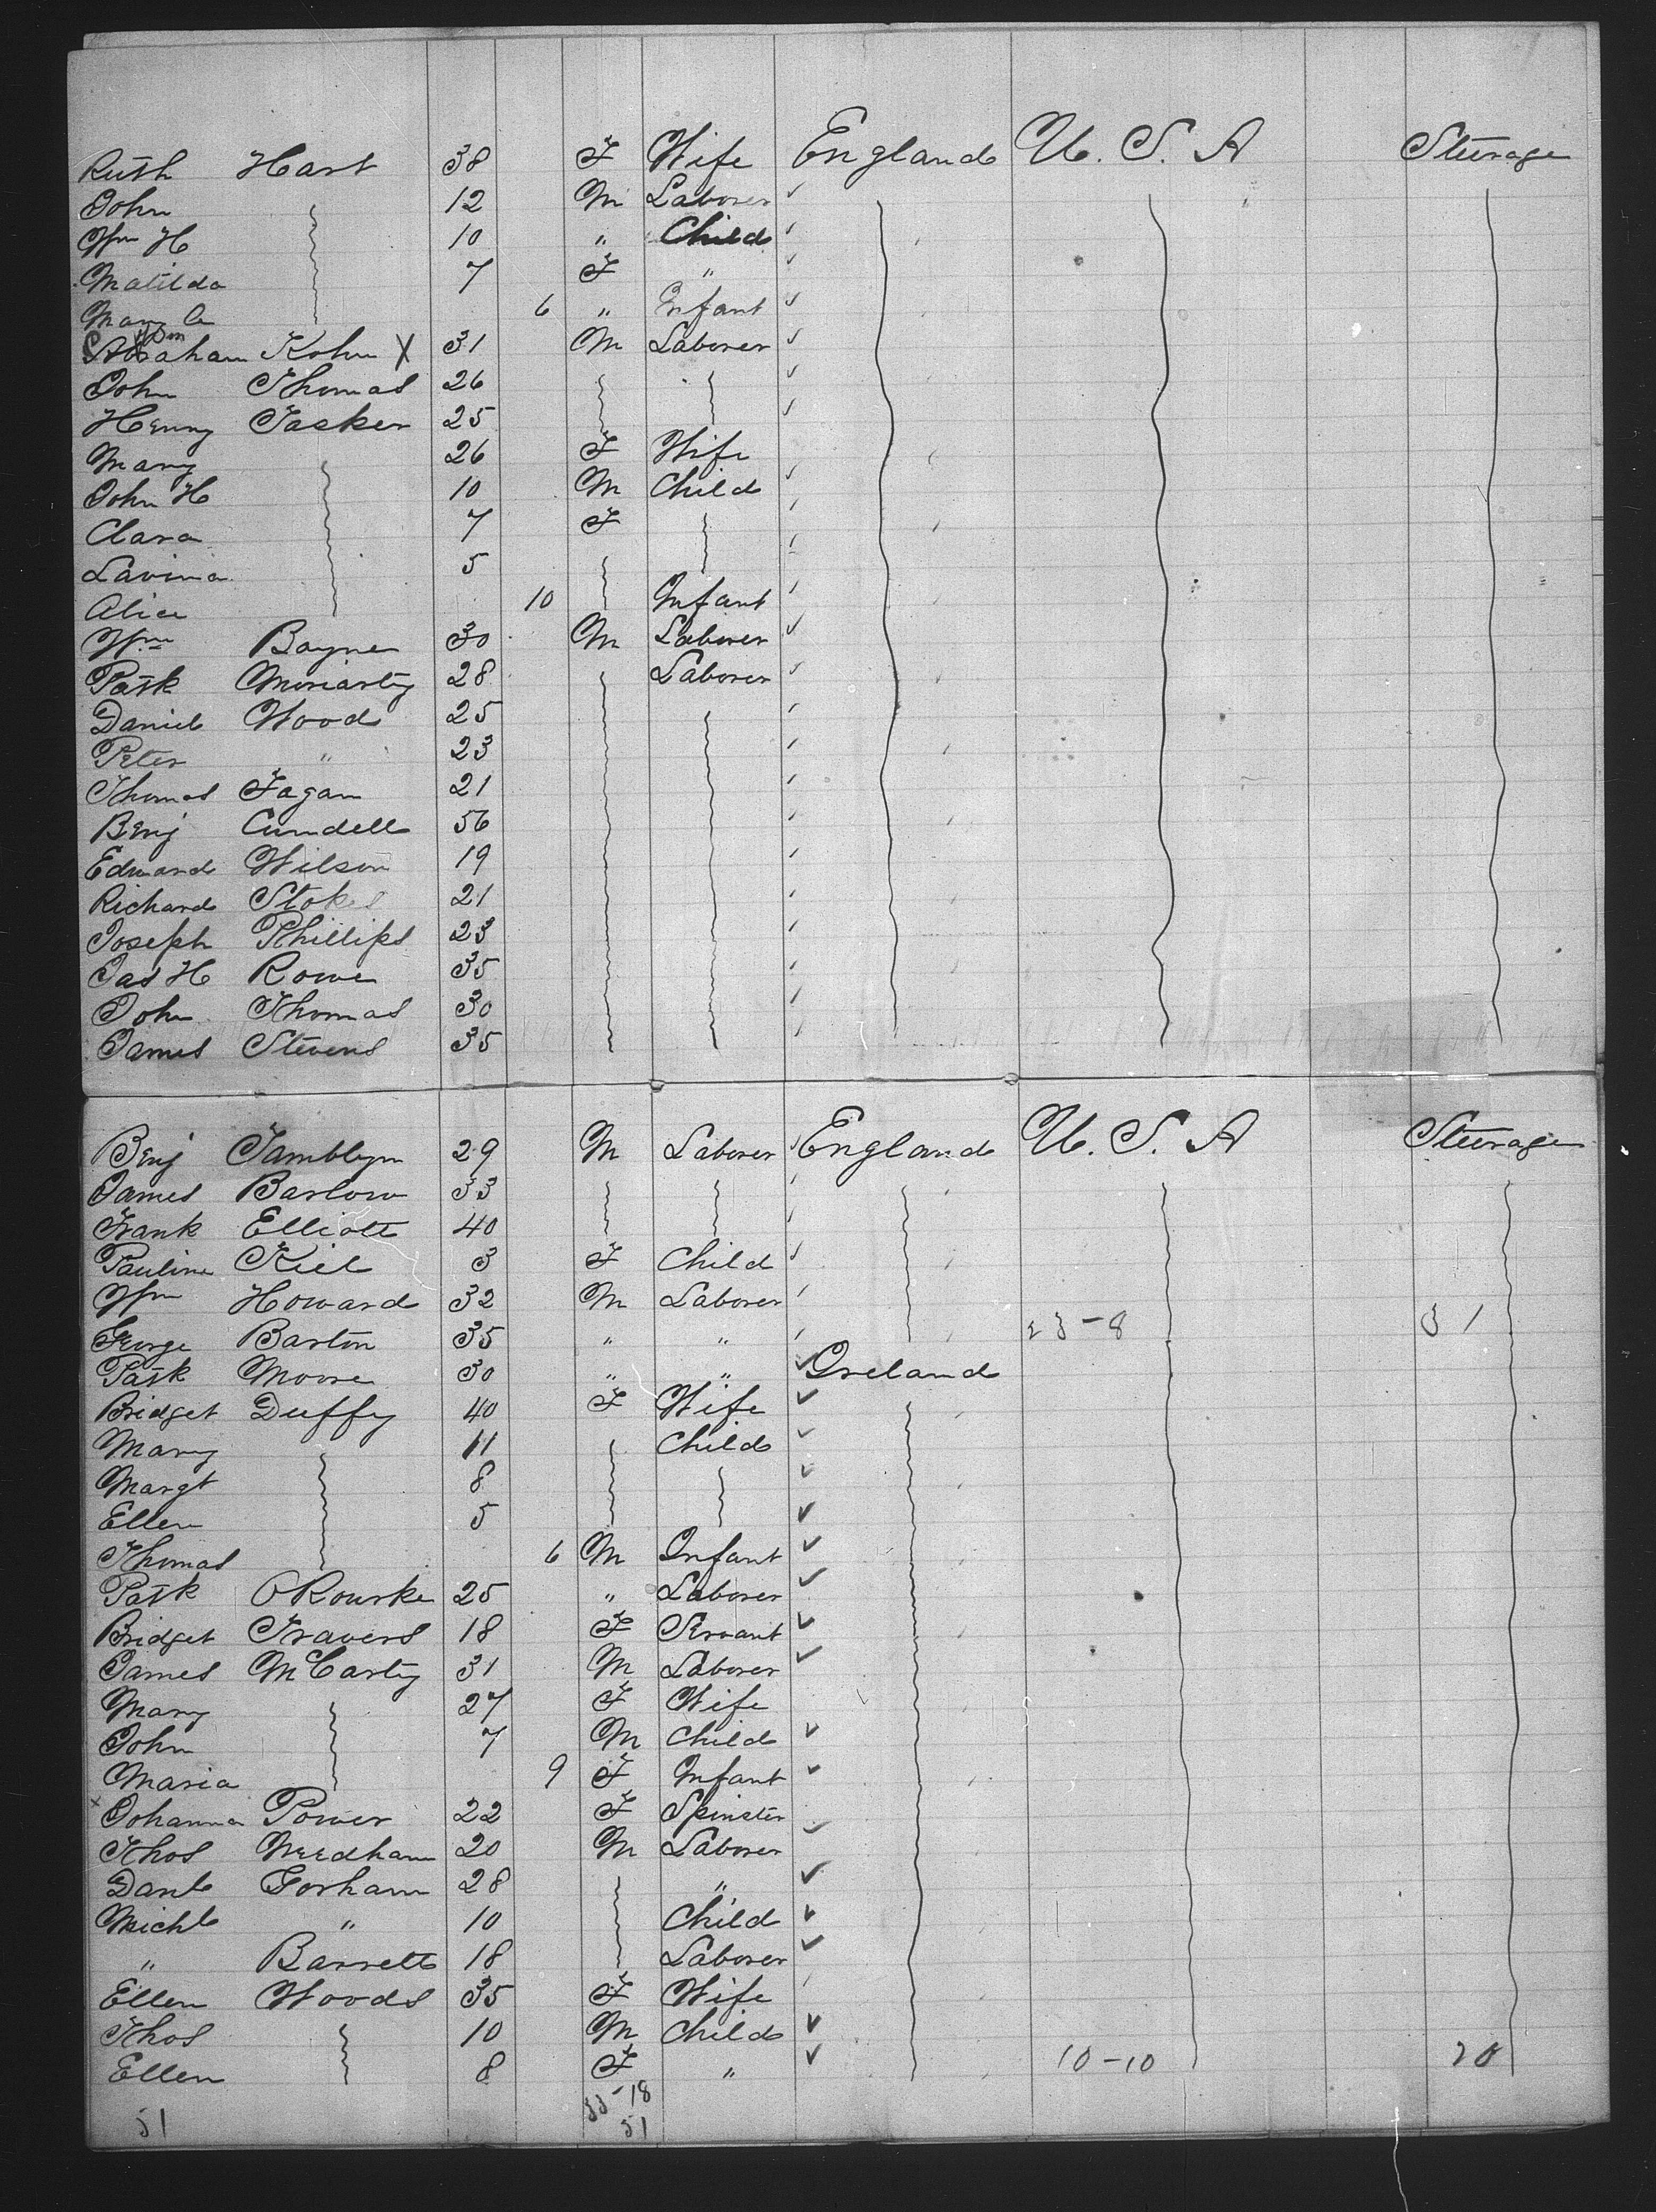 Ruth Hart 38 F Wife England U.S.A Steerage
John 12 M Laborer
Wm H 10 " Child
Matilda 7 F "
Mary 6 " Infant
Abraham Kohn X 31 M Laborer
John Thomas 26
Henry Tasker 25
Mary 26 F Wife
John H 10 M Child
Clara 7 F
Lavinia 5
Alice 10 Infant
Wm Bayne 30 M Laborer
Patk Moriarty 28 Laborer
Daniel Wood 25
Peter " 23
Thomas Fagan 21
Benj Cundell 56
Edward Wilson 19
Richard Stokes 21
Joseph Phillips 23
Jas H Rowe 35
John Thomas 30
James Stevens 35
Benj Tamblyn 29 M Laborer England U.S.A Steerage
James Barlow 33
Frank Elliott 40
Pauline Kiel 3 F Child
Wm Howard 32 M Laborer
George Barton 35 " " 23-8 31
Patk Moore 30 " " Ireland
Bridget Duffy 40 F Wife
Mary 11 Child
Margt 8
Ellen 5
Thomas 6 M Infant
Patk ORourke 25 " Laborer
Bridget Travers 18 F Servant
James McCarty 31 M Laborer
Mary 27 F Wife
John 7 M Child
Maria 9 F Infant
x Johanna Power 22 F Spinster
Thos Needham 20 M Laborer
Danl Gorham 28 "
Michl " 10 Child
" Barrett 18 Laborer
Ellen Woods 35 F Wife
Thos 10 M Child
Ellen 8 F " 10-10 20
33-18
51 51